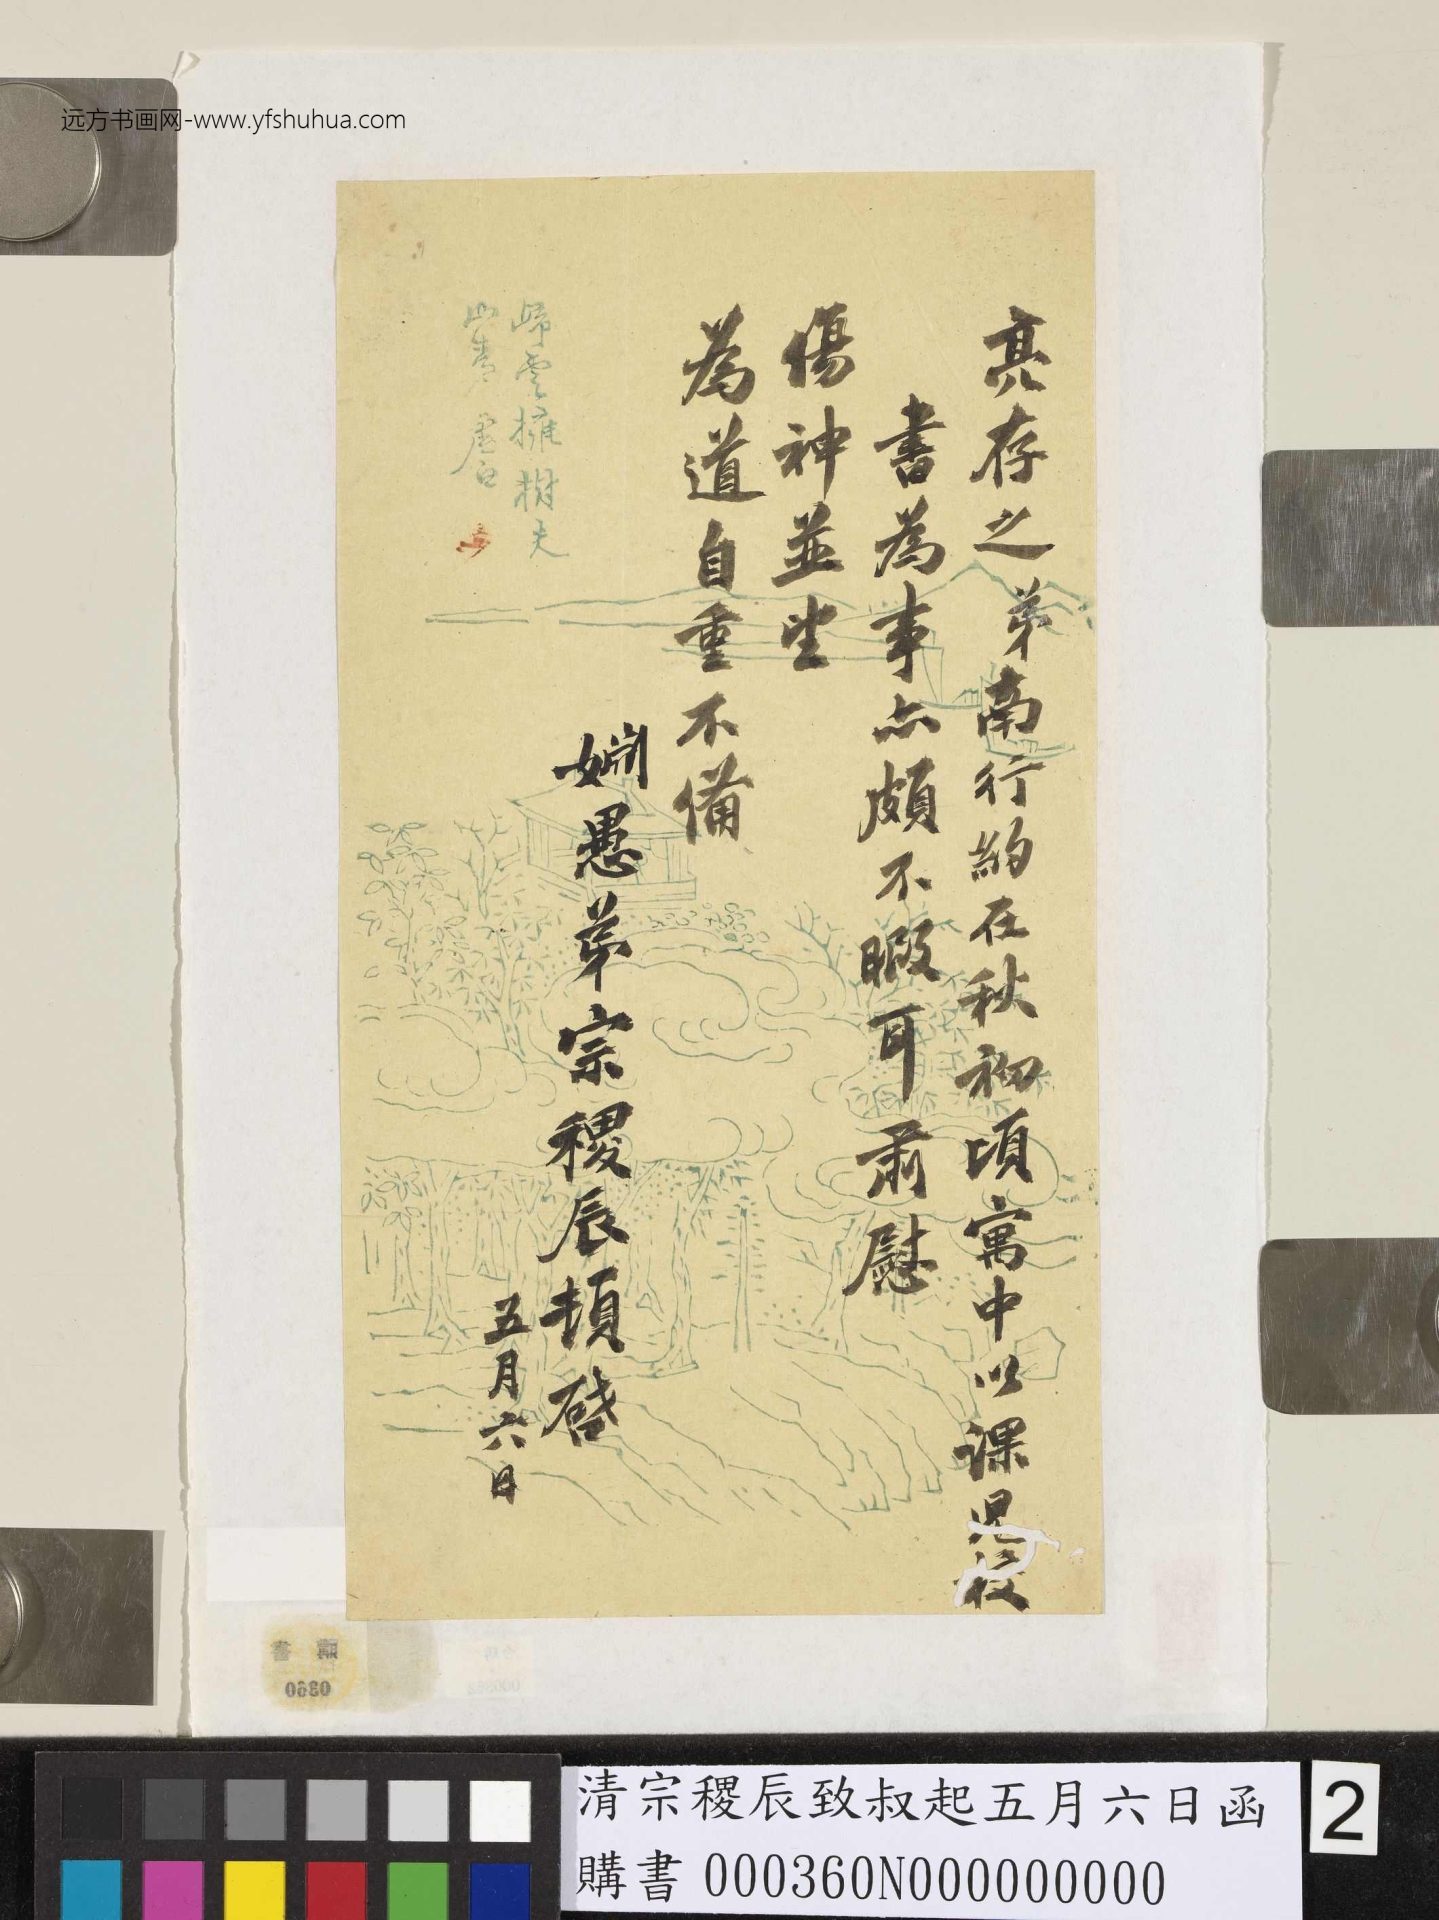 远方书画网-www.yfshuhua.com
亮存之弟南行約在秋初頃寓中以課兒校
書為事亦頗不暇耳肅慰
傷神並望
為道自重不備
姻愚弟宗稷辰頓啓
五月六日
歸雲擁樹夫
山
購書
0360
清宗稷辰致叔起五月六日函
購書 000360N000000000
2